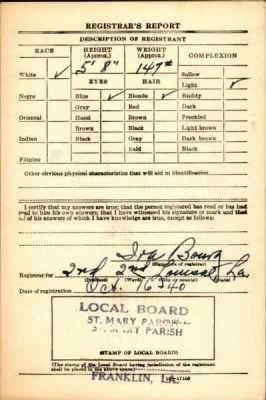 REGISTRAR'S REPORT
DESCRIPTION OF REGISTRANT
RACE HEIGHT (Approx.) WEIGHT (Approx.) COMPLEXION
White ✓ 5' 8" 147# Sallow
EYES HAIR Light ✓
Negro Blue ✓ Blonde ✓ Ruddy
Gray Red Dark
Oriental Hazel Brown Freckled
Brown Black Light brown
Indian Black Gray Dark brown
Bald Black
Filipino
Other obvious physical characteristics that will aid in identification
I certify that my answers are true; that the person registered has read or has had
read to him his own answers; that I have witnessed his signature or mark and that
all of his answers of which I have knowledge are true, except as follows:
Ira
Registrar for 2nd 2nd La.
Date of registration Oct. 16-40
LOCAL BOARD
ST. MARY PARISH
ST. MARY PARISH
(STAMP OF LOCAL BOARD)
(The stamp of the Local Board having jurisdiction of the registrant
shall be placed in the above space.)
FRANKLIN, LA.